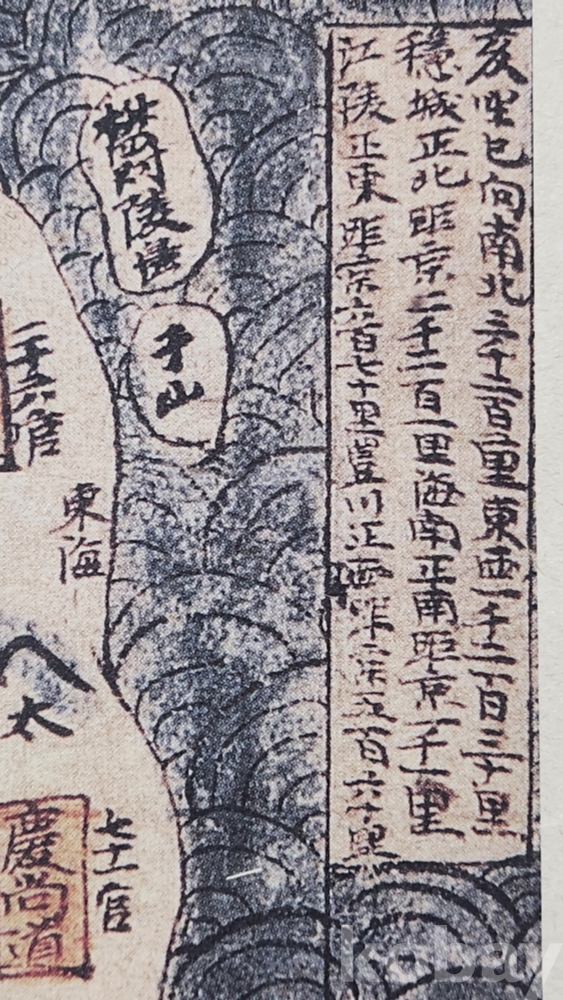 亥坐巳向南北三千二百里東西一千二百三十里
穩城正北距京二千二百一里海南正南距京一千一里
江陵正東距京六百七十里豊川正西距京五百六十里
陵
于山
二十六官
東海
太
七十一官
慶尚道
kobay